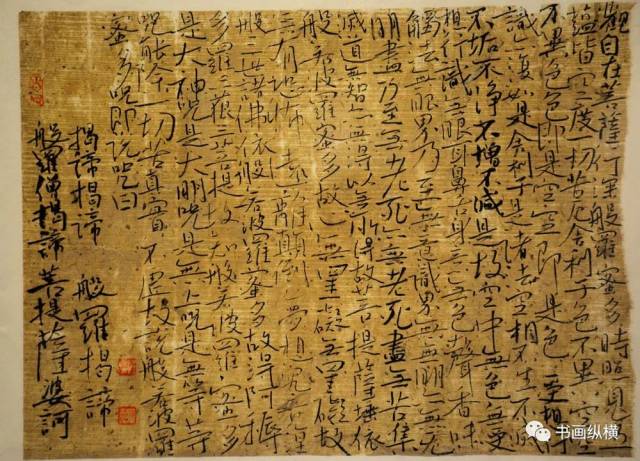 觀自在菩薩行深般若波羅蜜多時照見五
蘊皆空度一切苦厄舍利子色不異空空
不異色色即是空空即是色受想行
識亦復如是舍利子是諸法空相不生不滅
不垢不净不增不減是故空中無色無受
想行識無眼耳鼻舌身意無色聲香味
觸法無眼界乃至無意識界無無明亦無無
明盡乃至無老死亦無老死盡無苦集
滅道無智亦無得以無所得故菩提薩埵依
般若波羅蜜多故心無罣礙無罣礙故
無有恐怖遠離顛倒夢想究竟涅
槃三世諸佛依般若波羅蜜多故得阿耨
多羅三藐三菩提故知般若波羅蜜多
是大神咒是大明咒是無上咒是無等等
咒能除一切苦真實不虛故說般若波羅
蜜多咒即說咒曰
揭諦揭諦 般羅揭諦
般羅僧揭諦 菩提薩婆訶
书画纵横